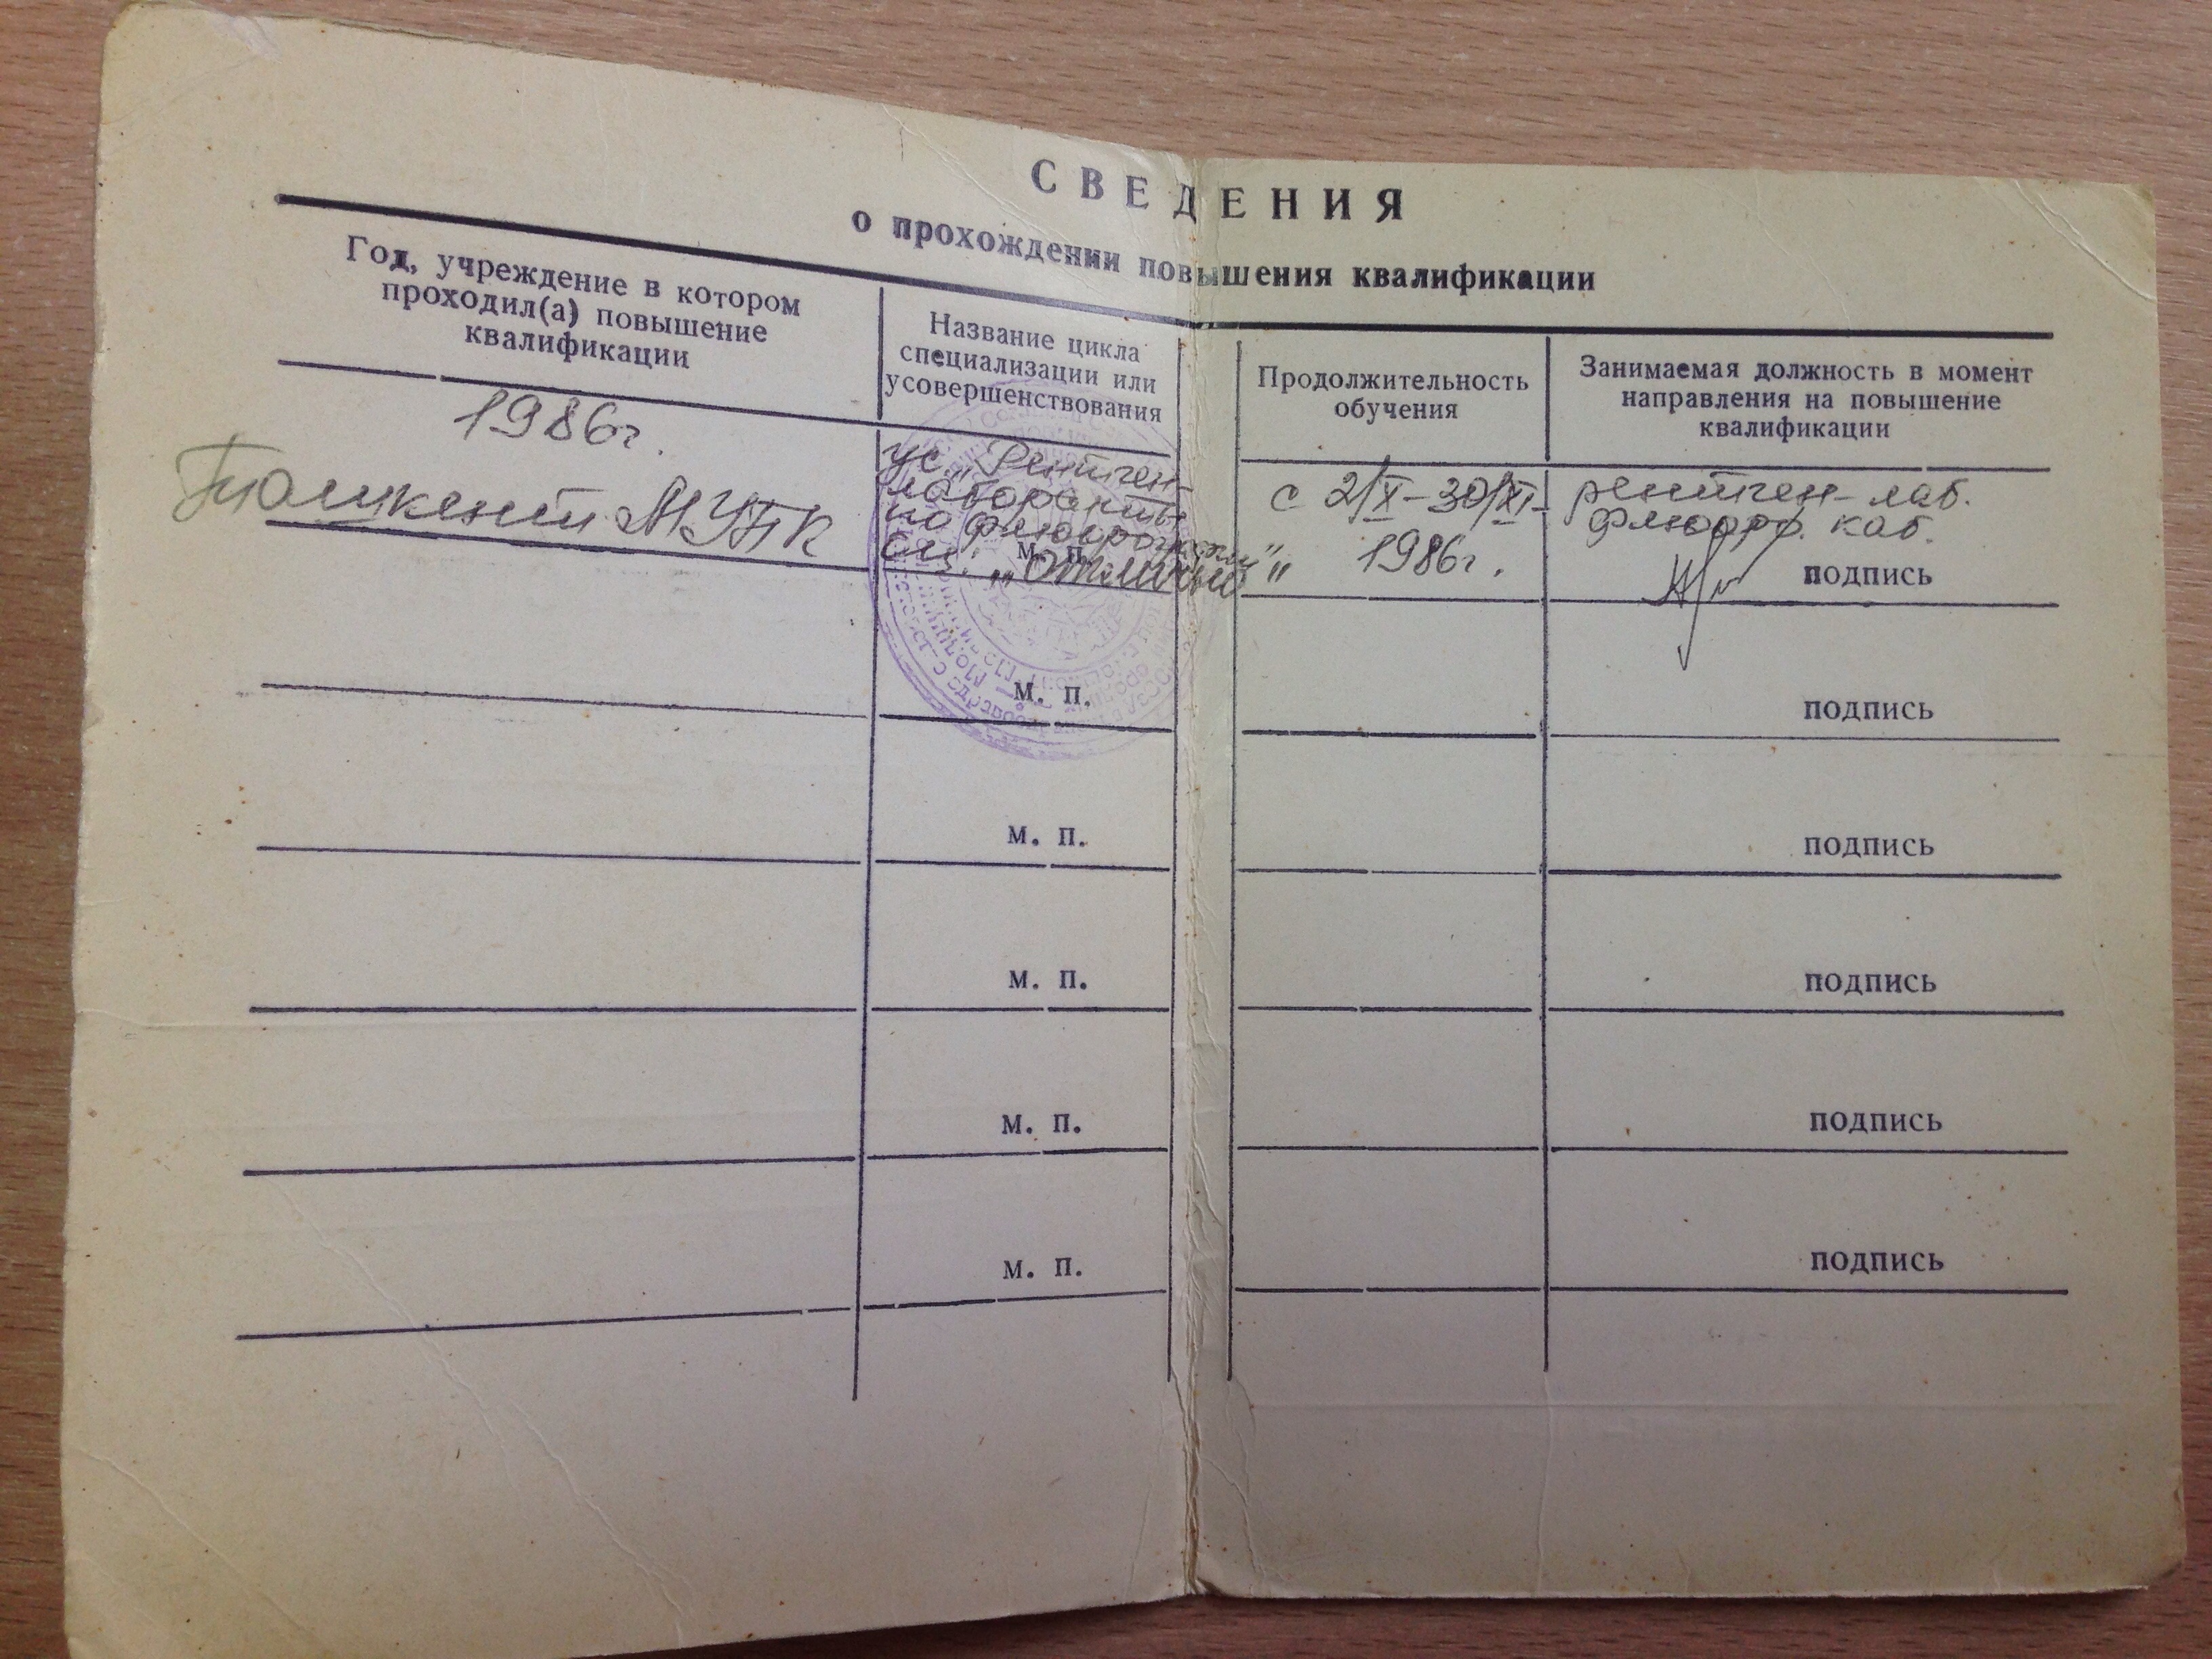 СВЕДЕНИЯ
о прохождении повышения квалификации
Год, учреждение в котором
проходил(а) повышение
квалификации
Название цикла
специализации или
усовершенствования
Продолжительность
обучения
Занимаемая должность в момент
направления на повышение
квалификации
1986г.
Ташкент МУПК
ус. „Рентген-
лаборанты
по флюорографии"
„Отлично"
м. п.
с 2/X-30/XI-
1986г.
рентген-лаб.
флюорогр. каб.
подпись
м. п.
подпись
м. п.
подпись
м. п.
подпись
м. п.
подпись
м. п.
подпись